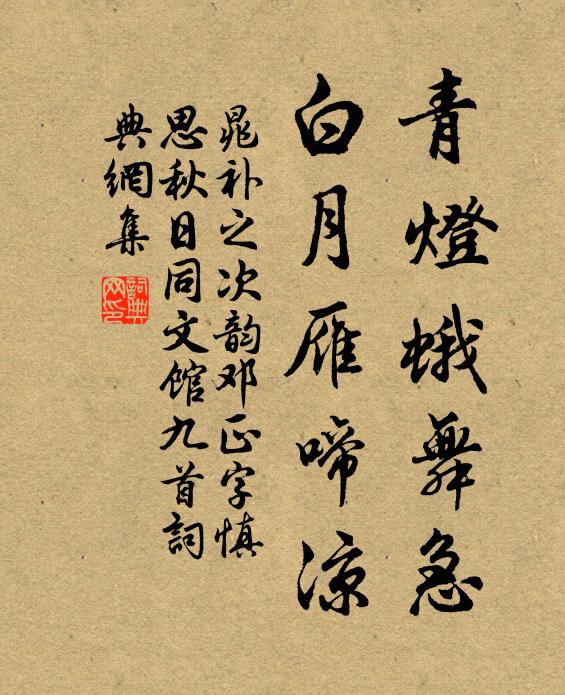 青燈蛾舞急
白月雁啼凉
晁补之次韵邓正字慎
思秋日同文館九首詞
典網集
詞典
网印